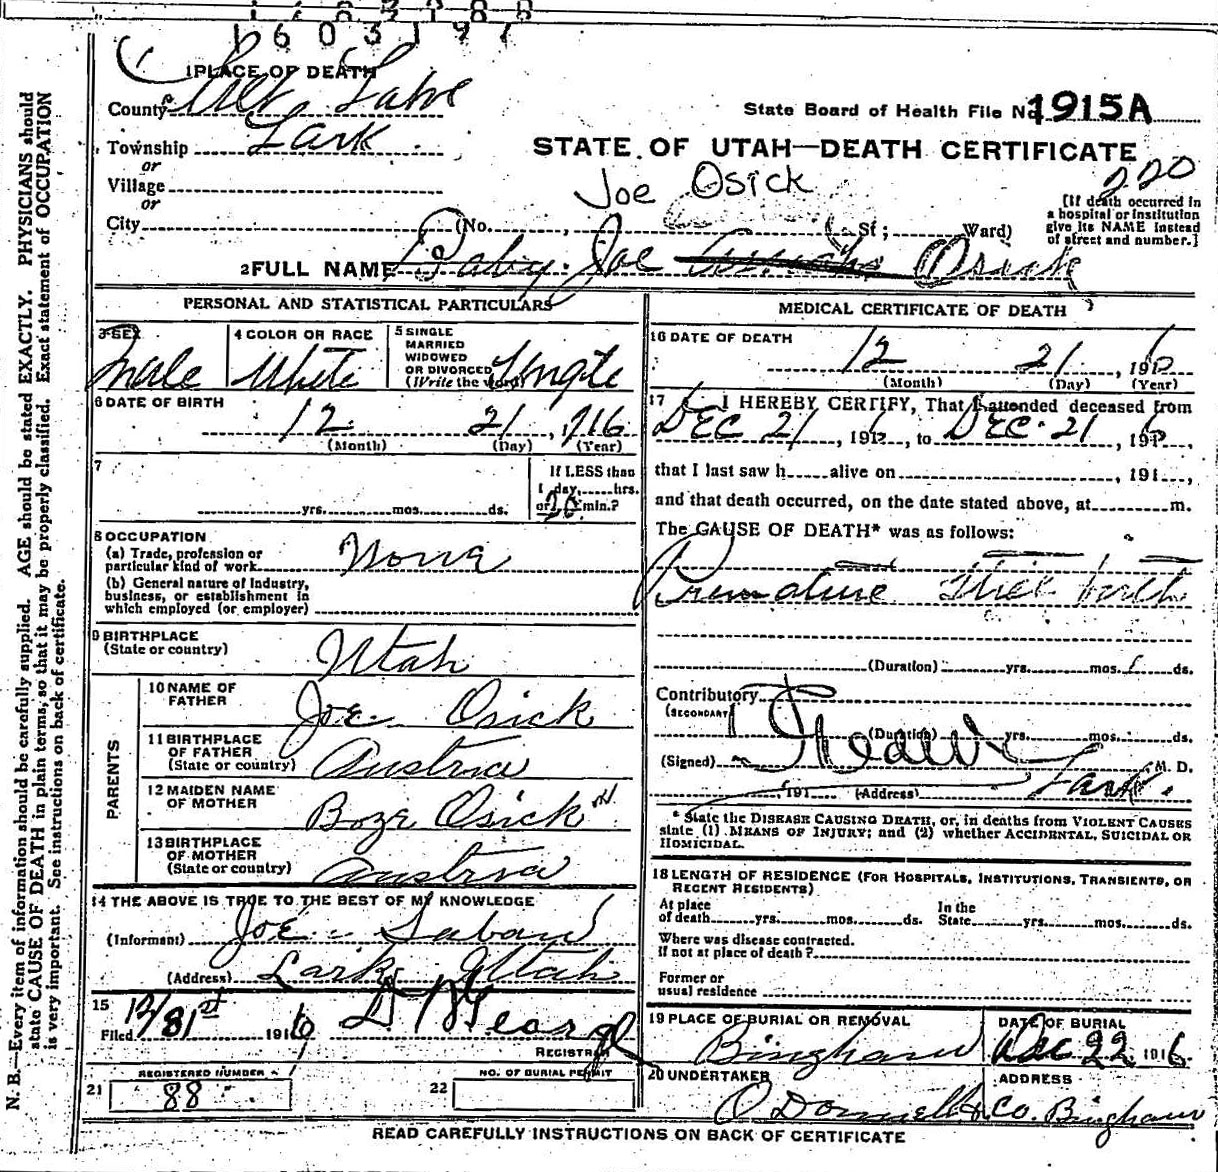 1603197
1 PLACE OF DEATH
County Salt Lake
State Board of Health File No. 1915A
Township Lark
STATE OF UTAH—DEATH CERTIFICATE
or
Village
Joe Osick
220
or
City (No. , St; Ward)
[If death occurred in a hospital or institution give its NAME instead of street and number.]
2 FULL NAME Baby Joe Osick
PERSONAL AND STATISTICAL PARTICULARS
3 SEX
Male
4 COLOR OR RACE
White
5 SINGLE MARRIED WIDOWED OR DIVORCED (Write the word) Single
6 DATE OF BIRTH
12 21, 1916
(Month) (Day) (Year)
7
yrs. mos. ds.
If LESS than 1 day, hrs. or 20 min.?
8 OCCUPATION
(a) Trade, profession or particular kind of work None
(b) General nature of Industry, business, or establishment in which employed (or employer)
9 BIRTHPLACE (State or country) Utah
PARENTS
10 NAME OF FATHER Joe Osick
11 BIRTHPLACE OF FATHER (State or country) Austria
12 MAIDEN NAME OF MOTHER Bozr Osick
13 BIRTHPLACE OF MOTHER (State or country) Austria
14 THE ABOVE IS TRUE TO THE BEST OF MY KNOWLEDGE
(Informant) Joe Saban
(Address) Lark, Utah
15
Filed 12/31st 1916
REGISTRAR
REGISTERED NUMBER
21 88
NO. OF BURIAL PERMIT
22
MEDICAL CERTIFICATE OF DEATH
16 DATE OF DEATH
12 21, 1916
(Month) (Day) (Year)
17 I HEREBY CERTIFY, That I attended deceased from
DEC 21, 1916, to DEC. 21 1916,
that I last saw h alive on , 191 ,
and that death occurred, on the date stated above, at m.
The CAUSE OF DEATH* was as follows:
Premature Still birth
(Duration) yrs. mos. ds.
Contributory
(SECONDARY)
(Duration) yrs. mos. ds.
(Signed) M. D.
, 191 (Address) Lark.
* State the DISEASE CAUSING DEATH, or, in deaths from VIOLENT CAUSES
state (1) MEANS OF INJURY; and (2) whether ACCIDENTAL, SUICIDAL OR
HOMICIDAL.
18 LENGTH OF RESIDENCE (FOR HOSPITALS, INSTITUTIONS, TRANSIENTS, OR
RECENT RESIDENTS)
At place of death yrs. mos. ds. In the State yrs. mos. ds.
Where was disease contracted.
if not at place of death?
Former or
usual residence
19 PLACE OF BURIAL OR REMOVAL
Bingham
DATE OF BURIAL
Dec 22 1916
20 UNDERTAKER
O Donnell & Co.
ADDRESS
Bingham
READ CAREFULLY INSTRUCTIONS ON BACK OF CERTIFICATE
N. B.—Every item of information should be carefully supplied. AGE should be stated EXACTLY. PHYSICIANS should
state CAUSE OF DEATH in plain terms, so that it may be properly classified. Exact statement of OCCUPATION
is very important. See instructions on back of certificate.